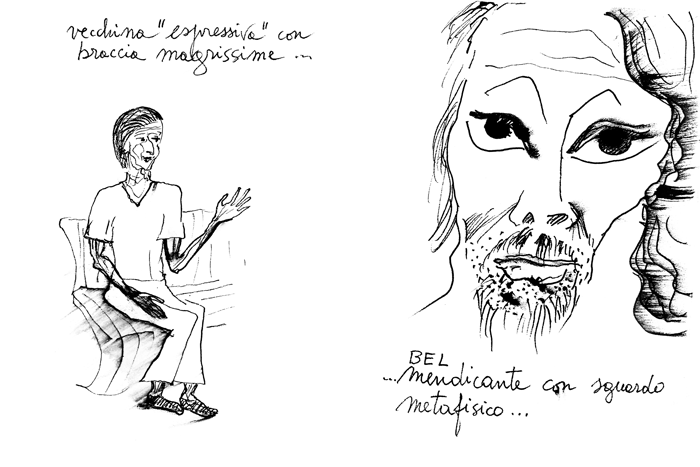 vecchina "espressiva" con
braccia magrissime ...
BEL
...mendicante con sguardo
metafisico...